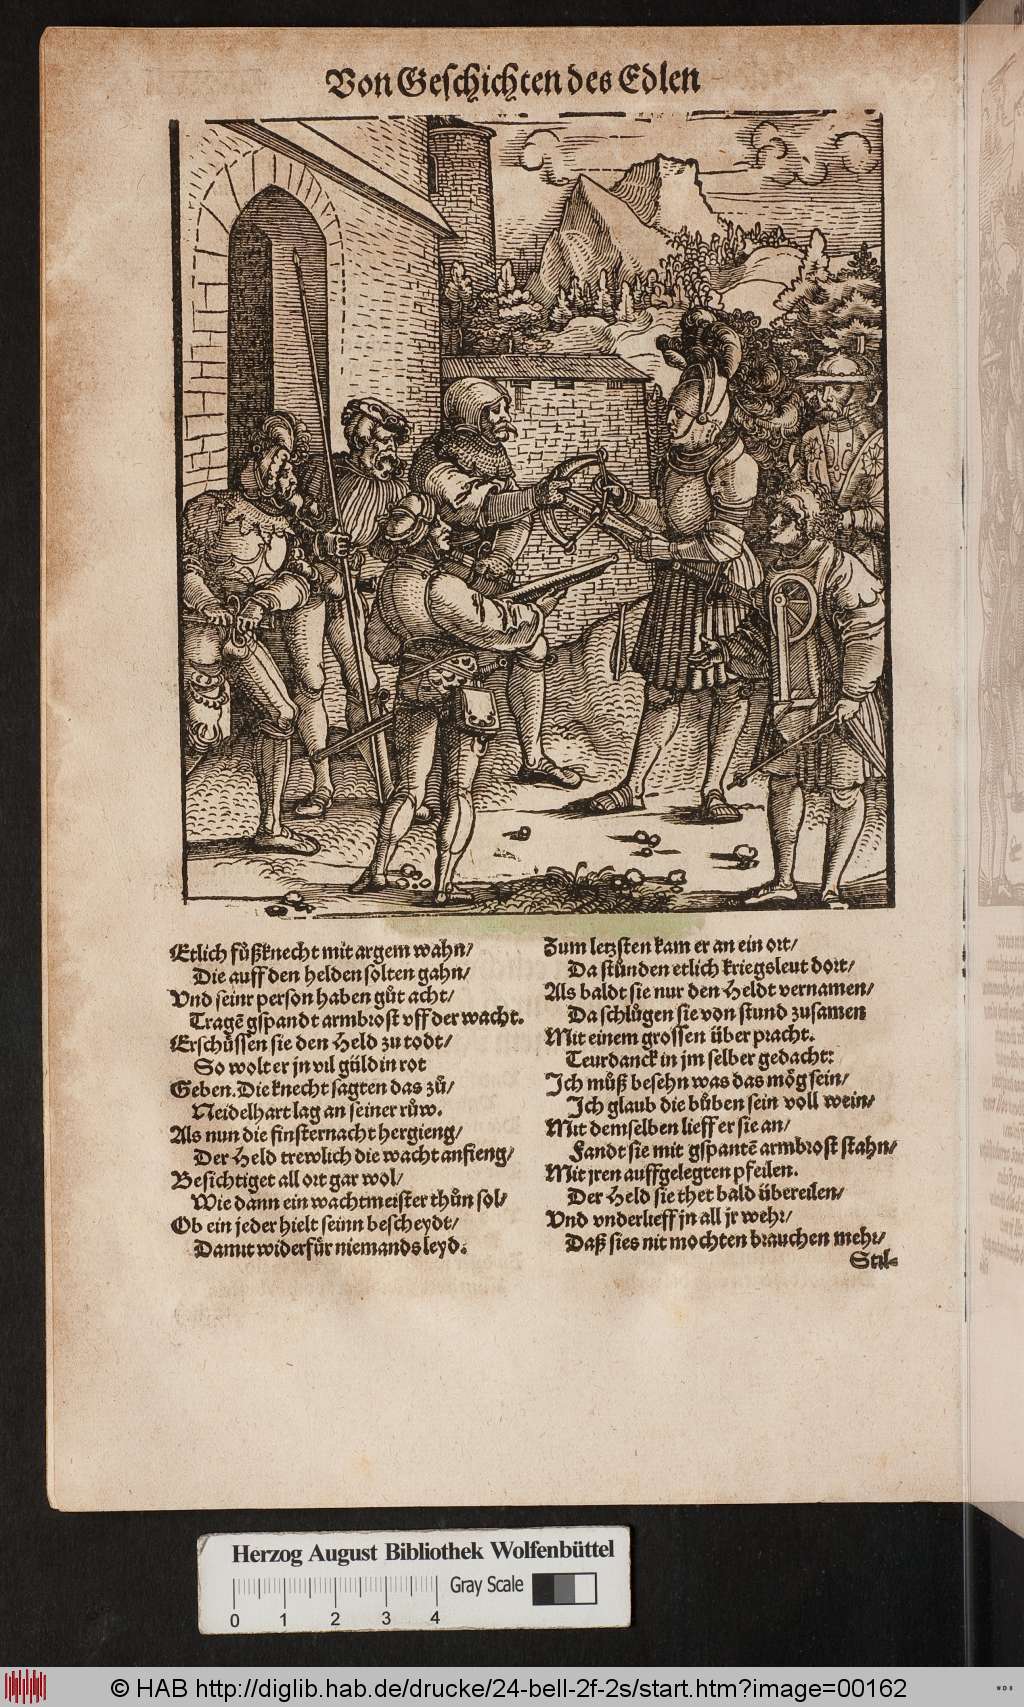 Von Geschichten des Edlen
Etlich fůßknecht mit argem wahn/
Die auff den helden solten gahn/
Vnd seinr person haben gůt acht/
Tragẽ gspandt armbrost vff der wacht.
Erschüssen sie den Held zu todt/
So wolt er jn vil güldin rot
Geben. Die knecht sagten das zů/
Neidelhart lag an seiner růw.
Als nun die finster nacht hergieng/
Der Held trewlich die wacht anfieng/
Besichtiget all ort gar wol/
Wie dann ein wachtmeister thůn sol/
Ob ein jeder hielt seinn bescheydt/
Damit widerfür niemands leyd.
Zum letzsten kam er an ein ort/
Da stůnden etlich kriegsleut dort/
Als baldt sie nur den Heldt vernamen/
Da schlůgen sie von stund zusamen
Mit einem grossen über pracht.
Teurdanck in jm selber gedacht:
Ich můß besehn was das mög sein/
Ich glaub die bůben sein voll wein/
Mit demselben lieff er sie an/
Fandt sie mit gspantẽ armbrost stahn/
Mit jren auffgelegten pfeilen.
Der Held sie thet bald übereilen/
Vnd vnderlieff jn all jr wehr/
Daß sies nit mochten brauchen mehr/
Stil=
Herzog August Bibliothek Wolfenbüttel
Gray Scale
0 1 2 3 4
© HAB http://diglib.hab.de/drucke/24-bell-2f-2s/start.htm?image=00162